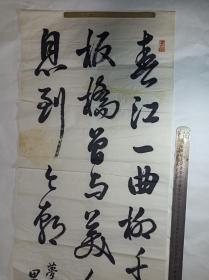 春江一曲柳千
板橋曾与美人
息到今朝
夢